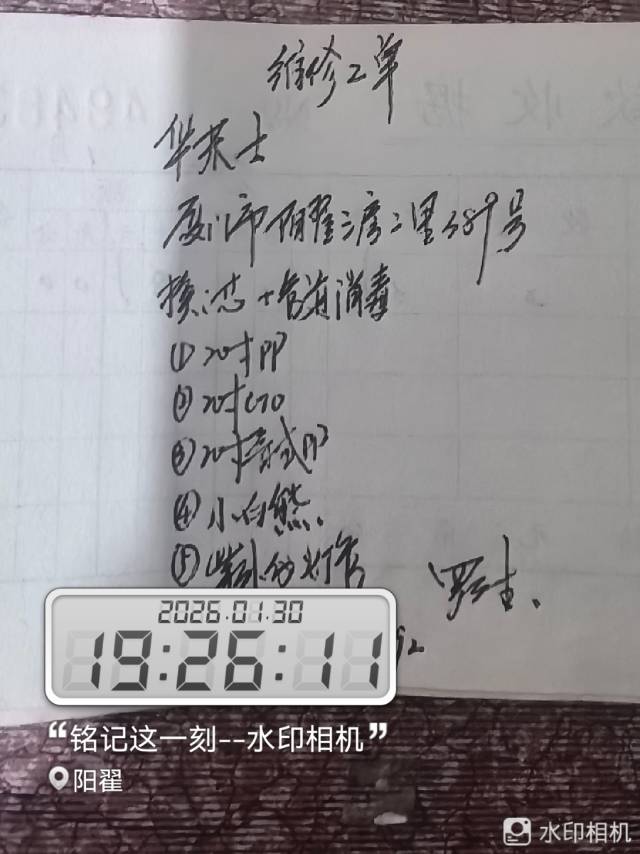 维修工单
华英士
厦门市阳翟三房二里389号
换滤芯+管道消毒
①20寸PP
②20寸CTO
③20寸 PP
④小白熊
⑤紫外的灯管
2026.01.30
19:26:11
“铭记这一刻--水印相机”
阳翟
水印相机